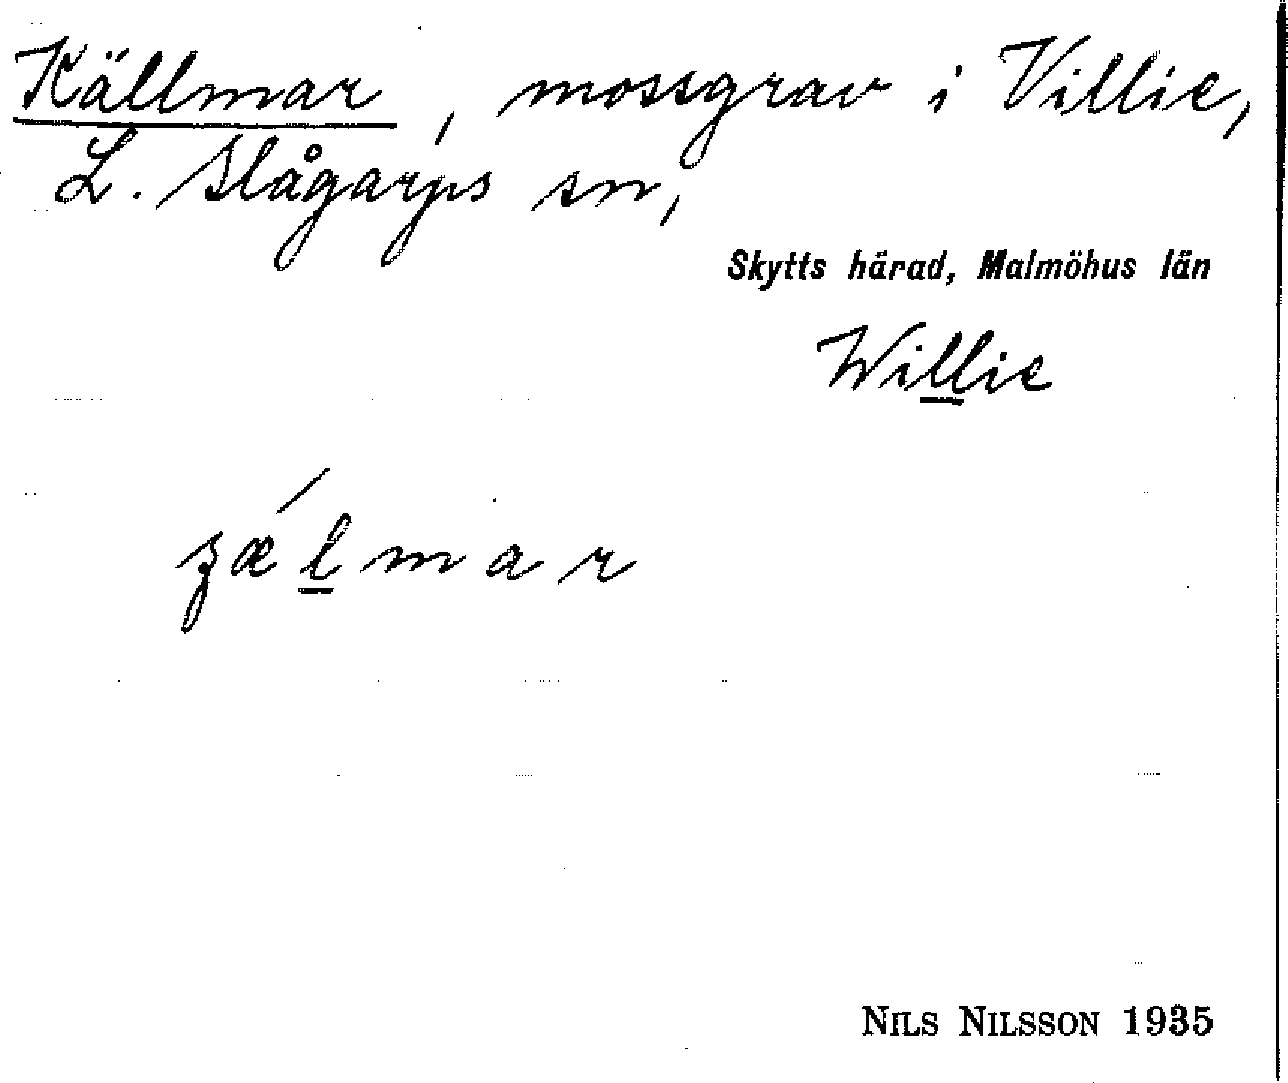 Källmar, mossgrav i Villie,
L. Slågarps sn,
Skytts härad, Malmöhus län
Willie
ʒælmar
NILS NILSSON 1935